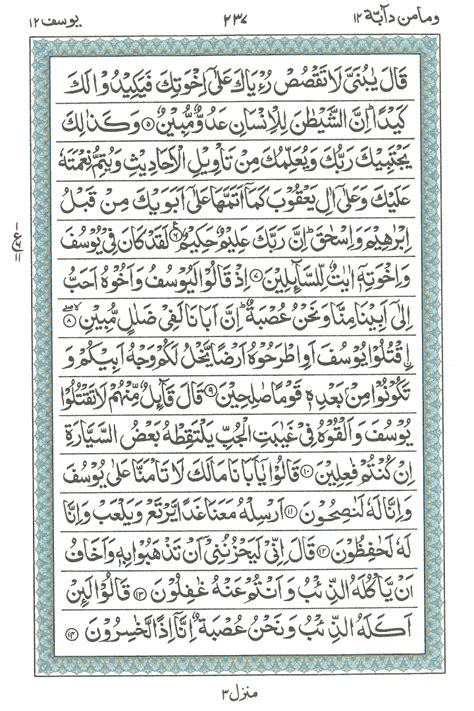 وما من دآبة ١٢
٢٣٧
يوسف ١٢
قَالَ يٰبُنَيَّ لَا تَقْصُصْ رُءْيَاكَ عَلٰٓى اِخْوَتِكَ فَيَكِيْدُوْا لَكَ
كَيْدًا ؕ اِنَّ الشَّيْطٰنَ لِلْاِنْسَانِ عَدُوٌّ مُّبِيْنٌ ۝۵ وَكَذٰلِكَ
يَجْتَبِيْكَ رَبُّكَ وَيُعَلِّمُكَ مِنْ تَاْوِيْلِ الْاَحَادِيْثِ وَيُتِمُّ نِعْمَتَهٗ
عَلَيْكَ وَعَلٰٓى اٰلِ يَعْقُوْبَ كَمَاۤ اَتَمَّهَا عَلٰٓى اَبَوَيْكَ مِنْ قَبْلُ
اِبْرٰهِيْمَ وَاِسْحٰقَ ؕ اِنَّ رَبَّكَ عَلِيْمٌ حَكِيْمٌ ۝۶ لَقَدْ كَانَ فِيْ يُوْسُفَ
وَاِخْوَتِهٖۤ اٰيٰتٌ لِّلسَّآىِٕلِيْنَ ۝۷ اِذْ قَالُوْا لَيُوْسُفُ وَاَخُوْهُ اَحَبُّ
اِلٰٓى اَبِيْنَا مِنَّا وَنَحْنُ عُصْبَةٌ ؕ اِنَّ اَبَانَا لَفِيْ ضَلٰلٍ مُّبِيْنِ ۝۸
اِ۟قْتُلُوْا يُوْسُفَ اَوِ اطْرَحُوْهُ اَرْضًا يَّخْلُ لَكُمْ وَجْهُ اَبِيْكُمْ وَ
تَكُوْنُوْا مِنْۢ بَعْدِهٖ قَوْمًا صٰلِحِيْنَ ۝۹ قَالَ قَآىِٕلٌ مِّنْهُمْ لَا تَقْتُلُوْا
يُوْسُفَ وَاَلْقُوْهُ فِيْ غَيٰبَتِ الْجُبِّ يَلْتَقِطْهُ بَعْضُ السَّيَّارَةِ
اِنْ كُنْتُمْ فٰعِلِيْنَ ۝۱۰ قَالُوْا يٰۤاَبَانَا مَالَكَ لَا تَاْمَنَّا عَلٰى يُوْسُفَ
وَاِنَّا لَهٗ لَنٰصِحُوْنَ ۝۱۱ اَرْسِلْهُ مَعَنَا غَدًا يَّرْتَعْ وَيَلْعَبْ وَاِنَّا
لَهٗ لَحٰفِظُوْنَ ۝۱۲ قَالَ اِنِّيْ لَيَحْزُنُنِيْۤ اَنْ تَذْهَبُوْا بِهٖ وَاَخَافُ
اَنْ يَّاْكُلَهُ الذِّئْبُ وَاَنْتُمْ عَنْهُ غٰفِلُوْنَ ۝۱۳ قَالُوْا لَىِٕنْ
اَكَلَهُ الذِّئْبُ وَنَحْنُ عُصْبَةٌ اِنَّاۤ اِذًا لَّخٰسِرُوْنَ ۝۱۴
منزل ٣